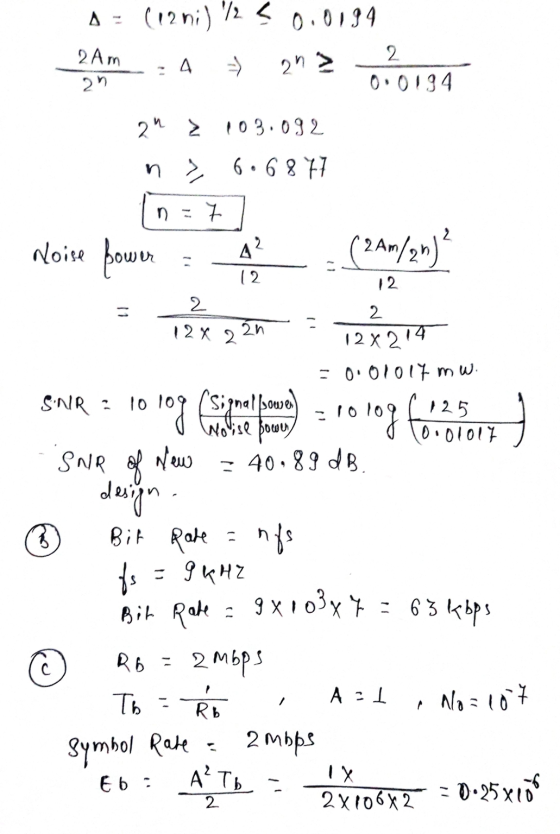 Δ = (12 ni)^1/2 ≤ 0.0194
2Am/2^n = Δ ⇒ 2^n ≥ 2/0.0194
2^n ≥ 103.092
n ≥ 6.6877
n = 7
Noise power = Δ²/12 = (2Am/2^n)²/12
= 2/(12 × 2^2n) = 2/(12 × 2^14)
= 0.01017 mw.
SNR = 10 log (Signal power/Noise power) = 10 log (125/0.01017)
SNR of New design. = 40.89 dB.
(B) Bit Rate = nfs
fs = 9 kHz
Bit Rate = 9 × 10³ × 7 = 63 kbps
(C) Rb = 2 Mbps
Tb = 1/Rb , A = 1 , N0 = 10^-7
Symbol Rate = 2 Mbps
Eb = A² Tb/2 = 1 ×/(2 × 10^6 × 2) = 0.25 × 10^-6